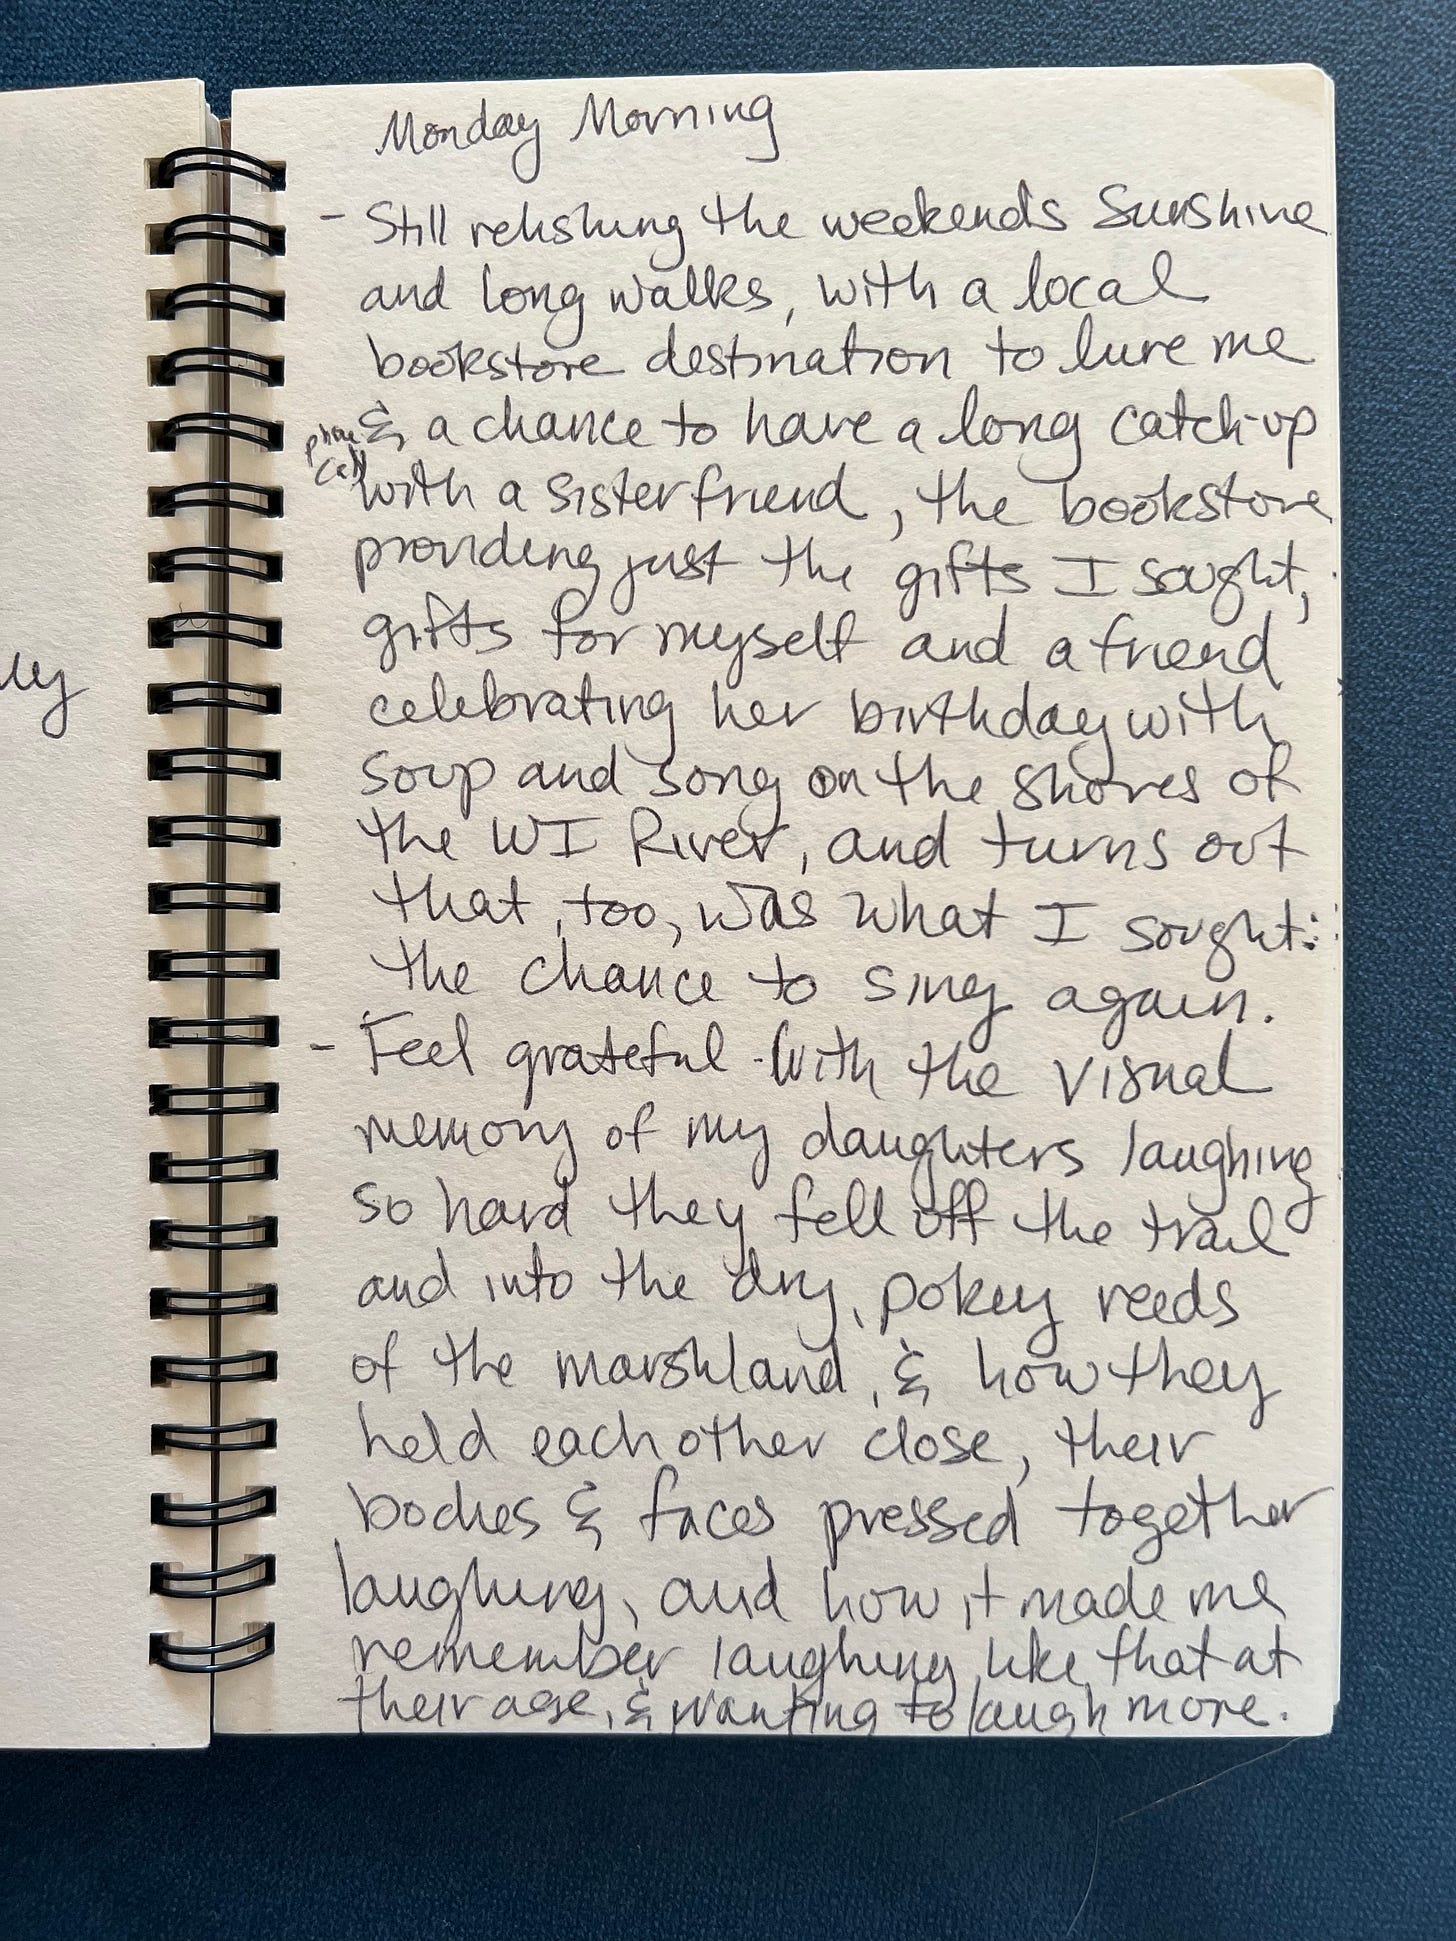 Monday Morning
- Still relishing the weekends Sunshine
and long walks, with a local
bookstore destination to lure me
& a chance to have a long catch-up
phone
call
with a sisterfriend, the bookstore
providing just the gifts I sought,
gifts for myself and a friend
celebrating her birthday with
soup and song on the shores of
the WI River, and turns out
that, too, was what I sought:
the chance to sing again.
- Feel grateful - with the visual
memory of my daughters laughing
so hard they fell off the trail
and into the dry, pokey reeds
of the marshland, & how they
held each other close, their
bodies & faces pressed together
laughing, and how it made me
remember laughing like that at
their age, & wanting to laugh more.